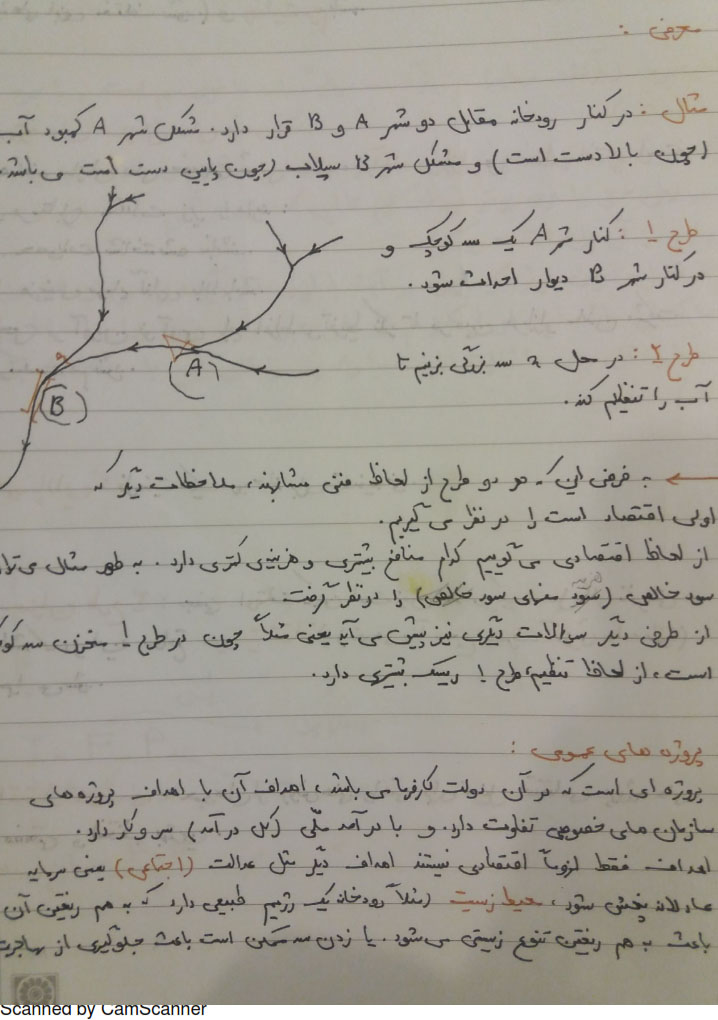 معرفی :
مثال : در کنار رودخانه مقابل دو شهر A و B قرار دارد. مشکل شهر A کمبود آب
(چون بالا دست است) و مشکل شهر B سیلاب (چون پایین دست است می باشد.
طرح 1 : کنار شهر A یک سد کوچک و
در کنار شهر B دیوار احداث شود.
طرح 2 : در محل a سد بزرگی بزنیم تا
آب را تنظیم کند.
a
A
B
← به فرض این که هر دو طرح از لحاظ فنی مشابهند، ملاحظات دیگر که
اولی اقتصاد است را در نظر می گیریم.
از لحاظ اقتصادی می گوییم کدام منافع بیشتری و هزینه ی کمتری دارد. به طور مثال می توان
سود خالص (سود منهای هزینه سود خالص) را در نظر گرفت
از طرفی دیگر سوالات دیگری نیز پیش می آید یعنی مثلاً چون در طرح 1 مخزن سد کوچک
است، از لحاظ تنظیم، طرح 1 ریسک بیشتری دارد.
پروژه های عمومی :
پروژه ای است که در آن دولت کارفرما می باشد، اهداف آن با اهداف پروژه های
سازمان های خصوصی تفاوت دارد. و با درآمد ملّی (کل درآمد) سر و کار دارد.
اهداف فقط لزوماً اقتصادی نیستند اهداف دیگر مثل عدالت (اجتماعی) یعنی سرمایه
عادلانه پخش شود، محیط زیست (مثلاً رودخانه یک رژیم طبیعی دارد که به هم ریختن آن
باعث به هم ریختن تنوع زیستی می شود. یا زدن سد ممکن است باعث جلوگیری از مهاجرت
Scanned by CamScanner